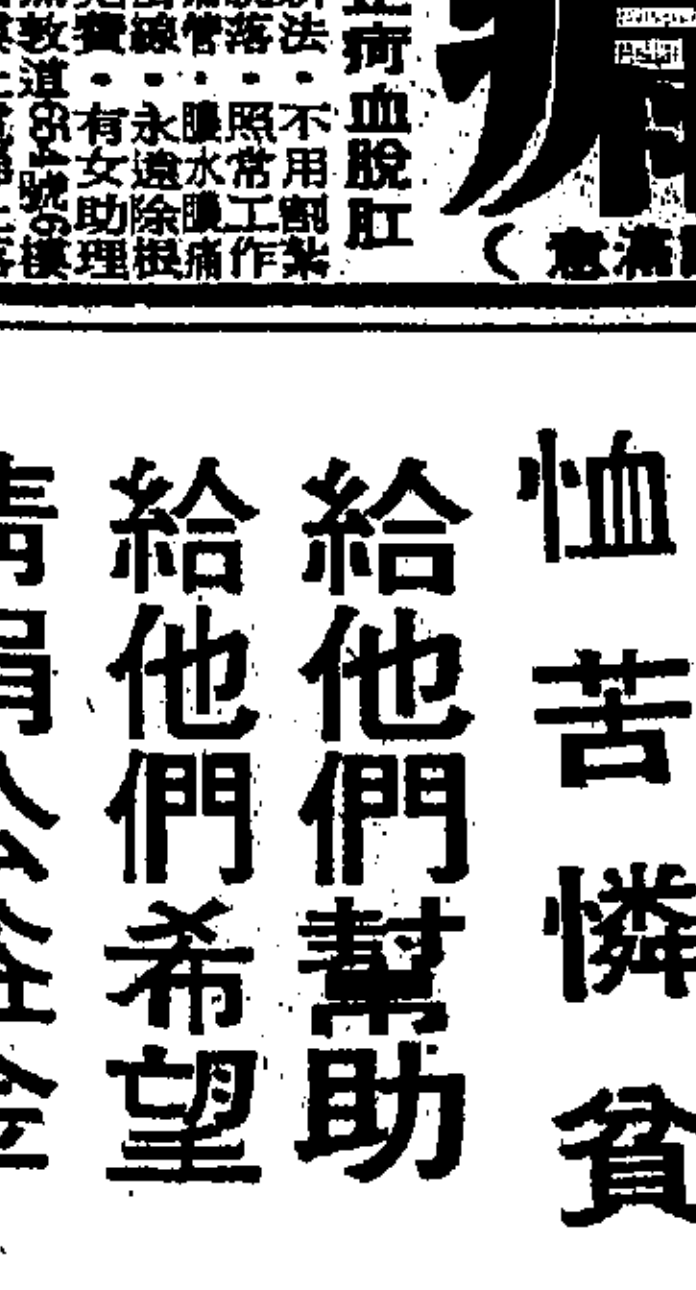 滿意
血脫肛
法・不用割紮
落・照常工作
管・膿水膿痛
線・永遠除根
費・有女助理
敦道654號6樓
恤苦憐貧
給他們幫助
給他們希望